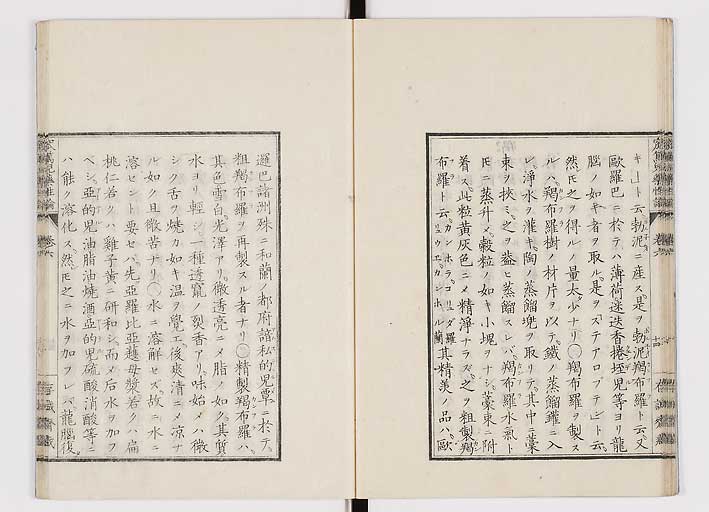 キ」ト云勃泥ニ産ス是ヲ勃泥羯布羅ト云又
歐羅巴ニ於テハ薄荷迷迭香捲垤児等ヨリ龍
脳ノ如キ者ヲ取ル是ヲ「ステアロプテヒ」ト云
然𪜈之ヲ得ルノ量太少ナリ○羯布羅ヲ製ス
ルハ羯布羅樹ノ材片ヲ以テ鐵ノ蒸餾鑵ニ入
レ浄水ヲ灌キ陶ノ蒸餾兠ヲ取リテ其中ニ藁
束ヲ挾ミ之ヲ葢ヒ蒸餾スレバ羯布羅水氣ト
𪜈ニ蒸升メ穀粒ノ如キ小塊ヲナシ藁束ニ附
着ス此粒黄灰色ニメ精淨ナラズ之ヲ粗製羯
布羅ト云 其精美ノ品ハ歐
邏巴諸洲殊ニ和蘭ノ都府諳私的児覃ニ於テ
粗羯布羅ヲ再製スル者ナリ○精製羯布羅ハ
其色雪白光澤アリ微透亮ニメ脂ノ如ク其質
水ヨリ輕シ一種透竄ノ烈香アリ味始メハ微
シク舌ヲ焼カ如キ温ヲ覺エ後爽清ニメ凉ナ
ル如ク且微苦ナリ○水ニ溶解セズ故ニ水ニ
溶セント要セバ先亞羅比亞護母漿若クハ扁
桃仁若クハ雞子黄ニ研和シ而メ后水ヲ加フ
ベシ亞的児油脂油燒酒亞的児硫酸消酸等ニ
ハ能ク溶化ス然𪜈之ニ水ヲ加フレバ龍腦復